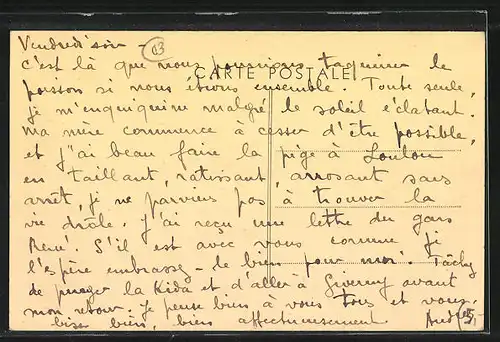 Vendredi soir – 13
CARTE POSTALE
c'est là que nous pourrions taquiner le
poisson si nous étions ensemble. Toute seule,
je m'enquiquine malgré le soleil éclatant.
Ma mère commence à cesser d'être possible,
et j'ai beau faire la pige à Loulou
en taillant, ratissant, arrosant sans
arrêt, je ne parviens pas à trouver la
vie drôle. J'ai reçu une lettre du gars
René. S'il est avec vous comme je
l'espère embrassez-le bien pour moi. Tâchez
de purger la Kida et d'aller à Giverny avant
mon retour. Je pense bien à vous tous et vous
bise bien, bien affectueusement